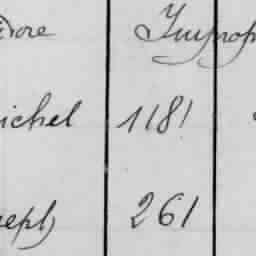 dore Impropr
ichel 1181
seph 261